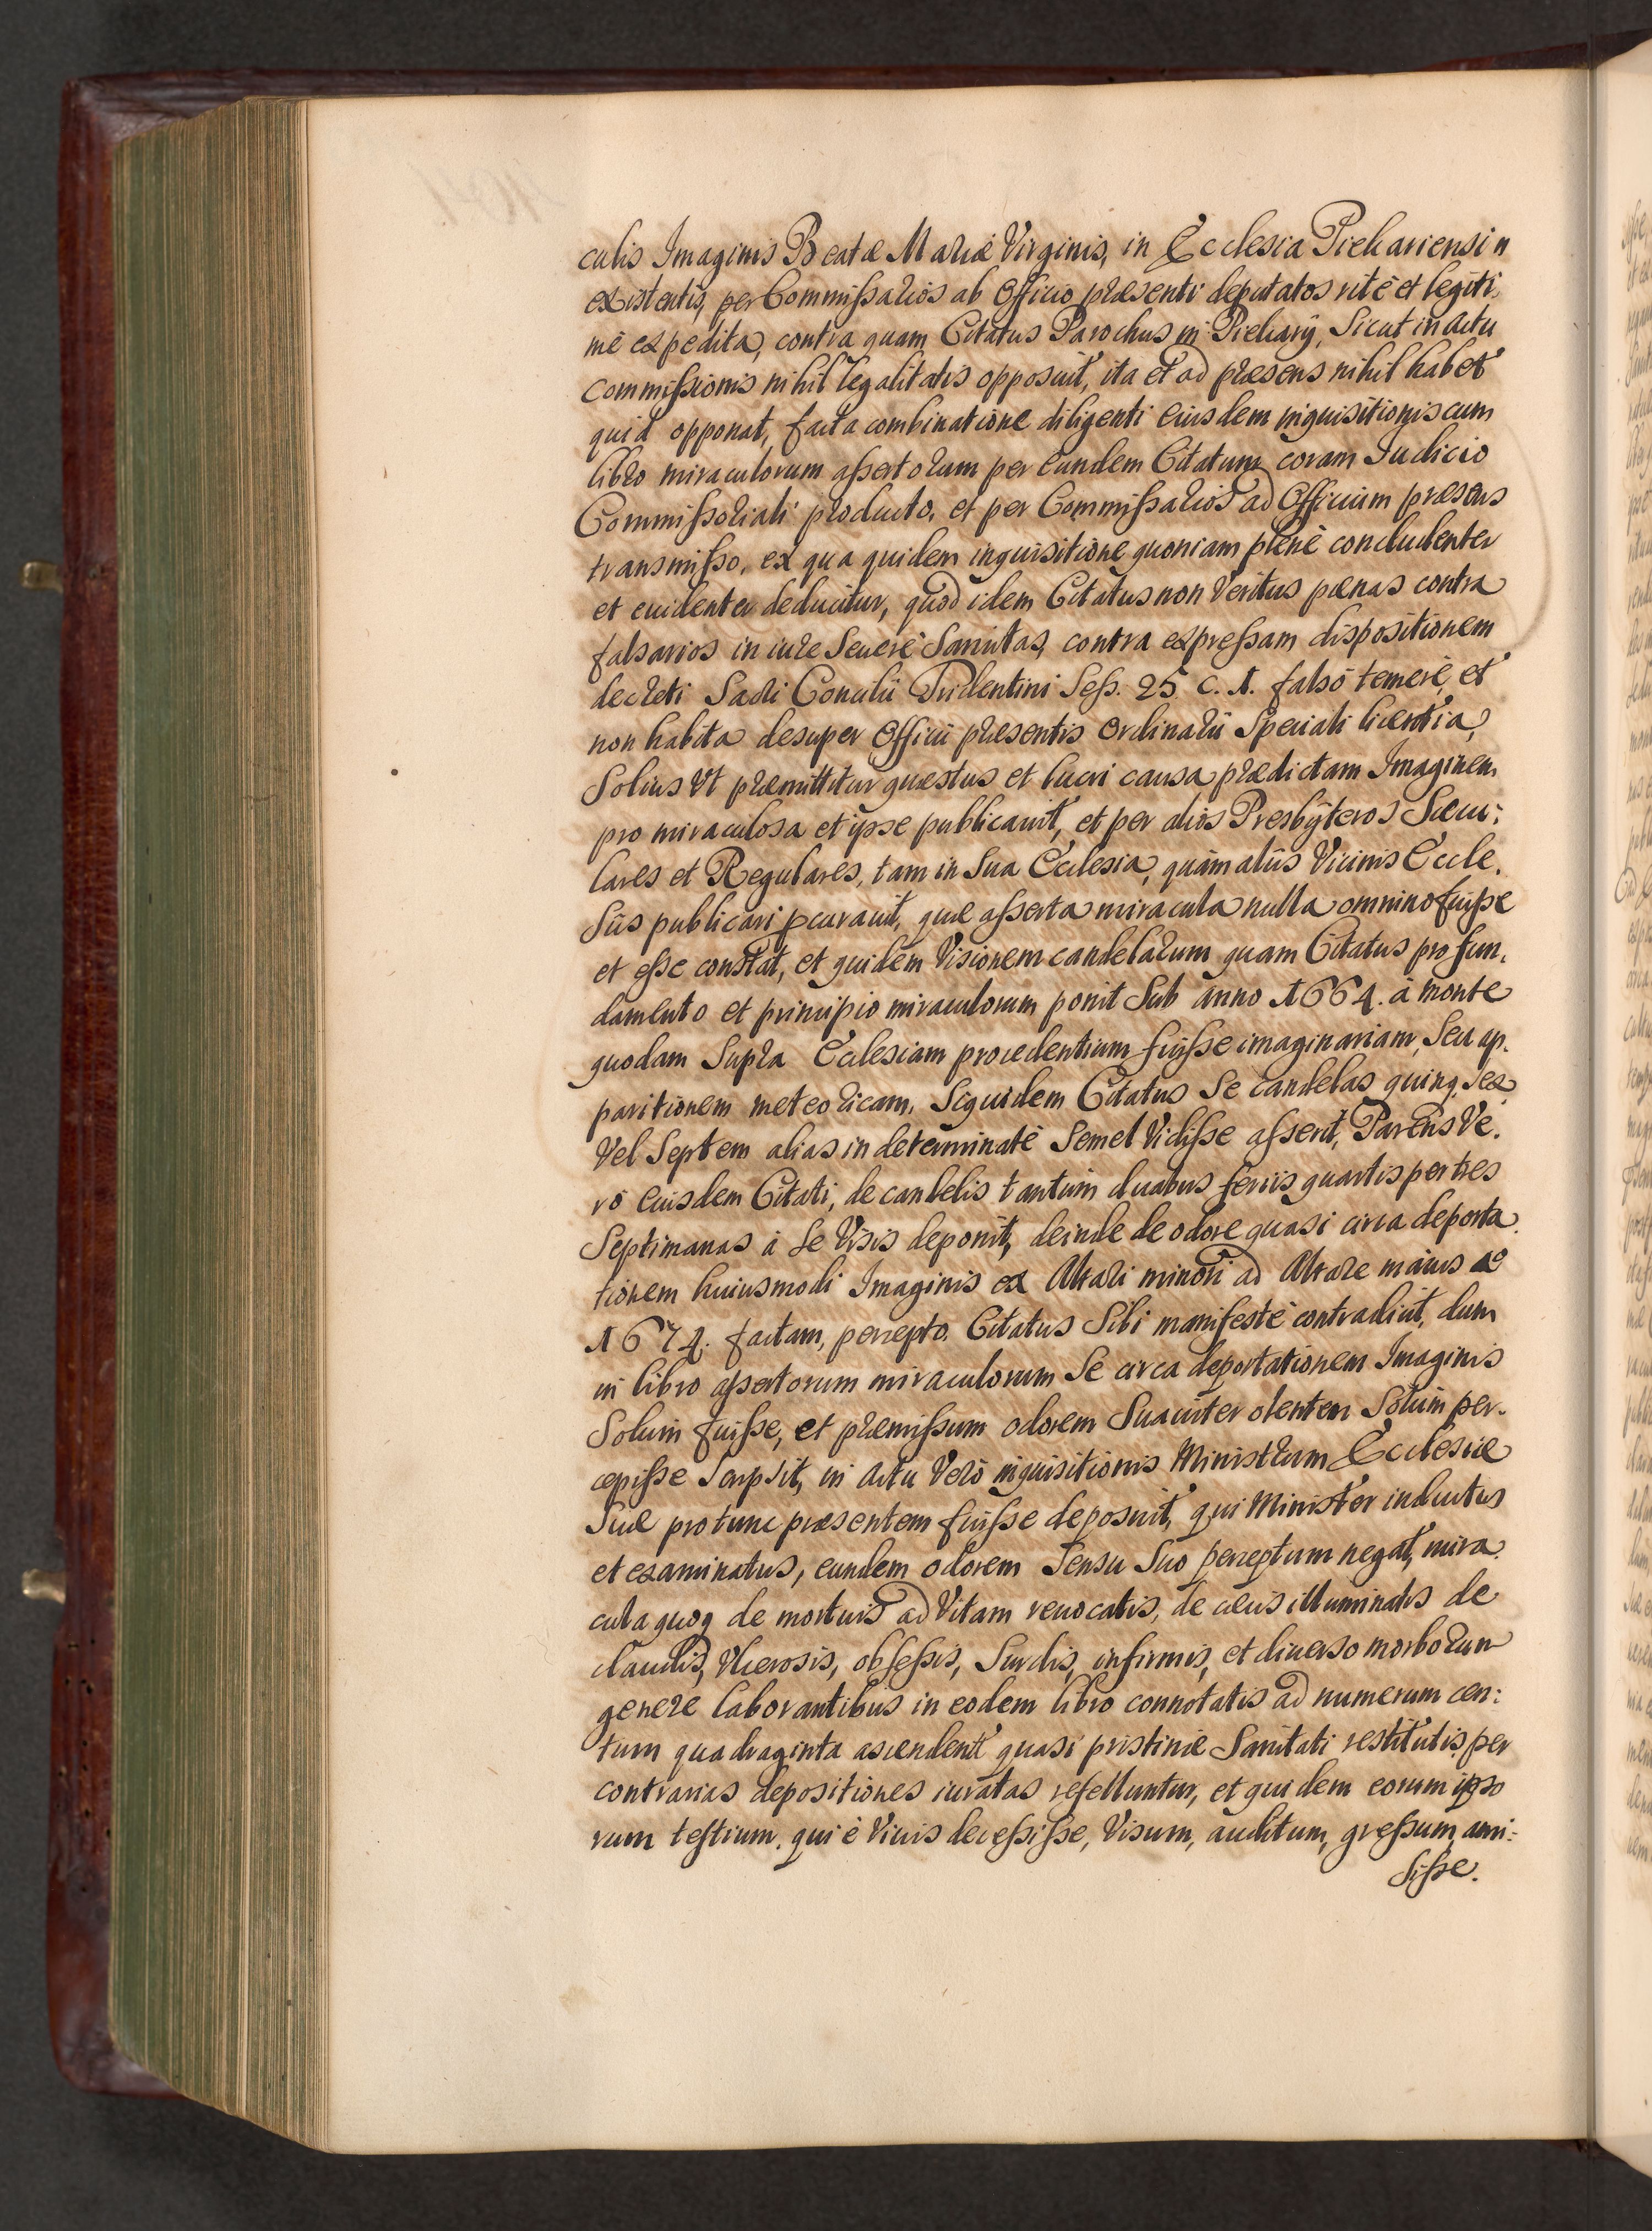 culis Imaginis Beatæ Mariæ Virginis, in Ecclesia Piekariensi n
existentis, per Commissarios ab Officio præsenti deputatos ritè et legiti:
mè expedita, contra quam Citatus Parochus in Piekary, Sicut in actu
commissionis nihil legalitatis opposuit, ita et ad præsens nihil habet
quid opponat, facta combinatione diligenti eiusdem inquisitionis cum
libro miraculorum assertorum per eundem Citatum coram Iudicio
Commissoriali producto, et per Commissarios ad Officium præsens
transmisso, ex qua quidem inquisitione quoniam plenè concludenter
et euidenter deducitur, quod idem Citatus non Veritus pænas contra
falsarios in iure Seuerè Sancitas, contra expressam dispositionem
decreti Sacri Concilii Tridentini Sess. 25 C. 1. falsò temerè, et
non habita desuper Officii præsentis Ordinarii Speciali licentia,
Solius Vt præmittitur quæstus et lucri causa, prædictam Imaginem
pro miraculosa et ipse publicauit, et per alios Presbÿteros Sæcu:
lares et Regulares, tam in Sua Ecclesia, quàm aliis Vicinis Eccle.
Siis publicari pcurauit, quæ asserta miracula nulla omnino fuisse
et esse constat, et quidem Visionem candelarum quam Citatus pro fun.
damento et principio miraculorum ponit Sub anno 1664. à monte
quodam Supra Ecclesiam procedentium fuisse imaginariam, Seu ap.
paritionem meteoricam, Siquidem Citatus Se candelas quinq, Sex
Vel Septem alias indeterminatè Semel Vidisse asserit, Parens Ve.
rò eiusdem Citati, de candelis tantùm duabus feriis quartis per tres
Septimanas à Se Visis deponit, deinde de odore quasi circa deporta.
tionem huiusmodi Imaginis ex Altari minori ad Altare maius Ao
1674. factam, percepto. Citatus Sibi manifestè contradicit, dum
in libro assertorum miraculorum Se circa deportationem Imaginis
Solum fuisse, et præmissum odorem Suauiter olentem Solùm per.
cepisse Scripsit, in actu Verò inquisitionis Ministrum Ecclesiæ
Suæ pro tunc præsentem fuisse deposuit, qui Minister inductus
et examinatus, eundem odorem Sensu Suo perceptum negat, mira.
cula quoq de mortuis ad Vitam reuocatis, de cæcis illuminatis de
claudis, Vlcerosis, obsessis, Surdis, infirmis, et diuerso morborum
genere laborantibus in eodem libro connotatis ad numerum cen:
tum quadraginta ascendent quasi pristinæ Sanitati restitutis, per
contrarias depositiones iuratas refelluntur, et quidem eorum ipso
rum testium, qui è Viuis decessisse, Visum, auditum, gressum, ami:
sisse.